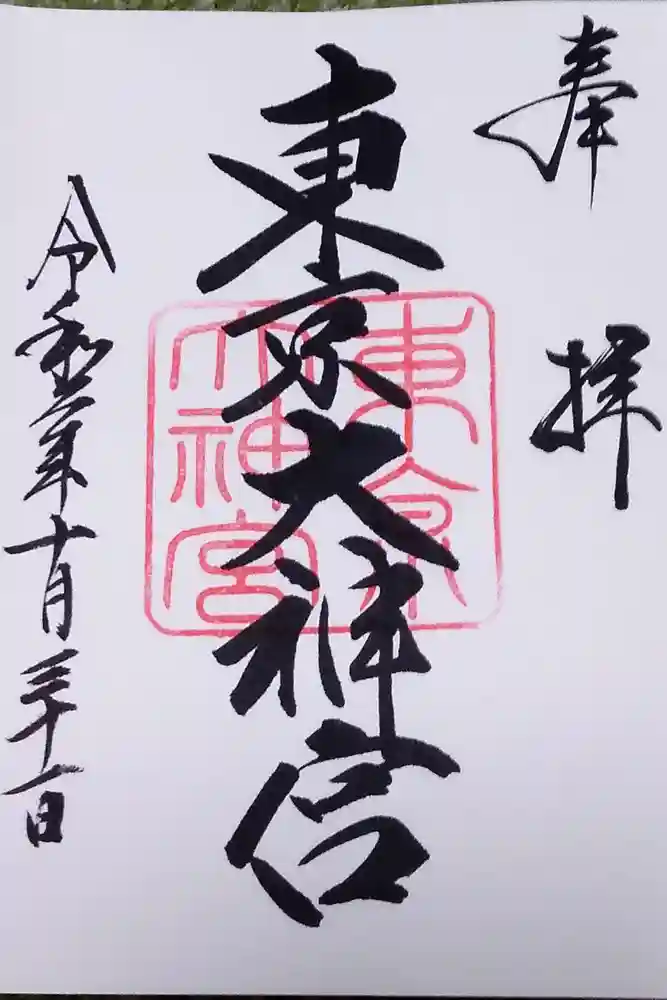 奉拝
東京大神宮
東京
大神宮
令和二年十月三十一日